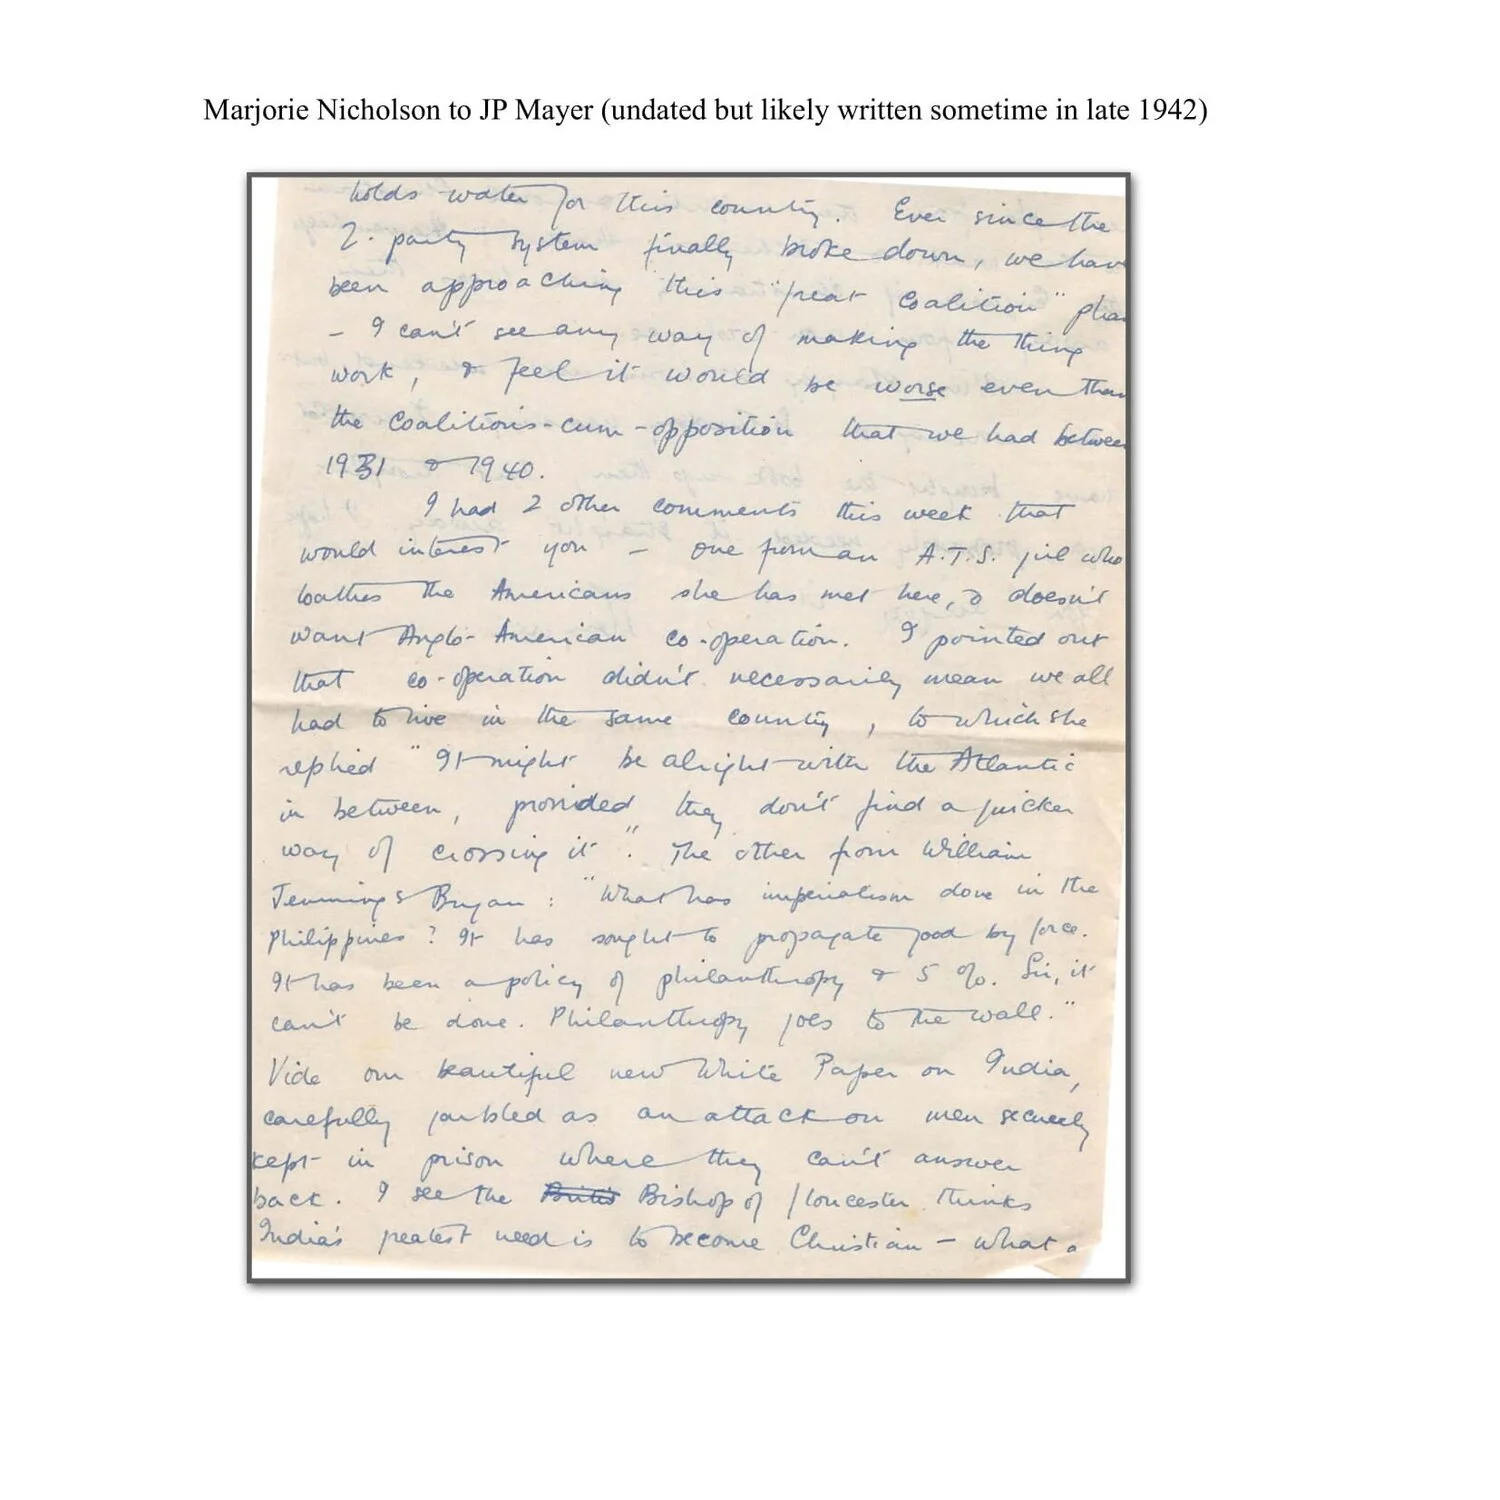 Marjorie Nicholson to JP Mayer (undated but likely written sometime in late 1942)
holds water for this country. Ever since the
2-party system finally broke down, we have
been approaching this "great coalition" plan
- I can't see any way of making the thing
work, & feel it would be worse even than
the coalitions-cum-opposition that we had between
1931 & 1940.
I had 2 other comments this week that
would interest you - one from an A.T.S. girl who
loathes the Americans she has met here, & doesn't
want Anglo-American co-operation. I pointed out
that co-operation didn't necessarily mean we all
had to live in the same country, to which she
replied "It might be alright with the Atlantic
in between, provided they don't find a quicker
way of crossing it". The other from William
Jennings Bryan: "What has imperialism done in the
Philippines? It has sought to propagate good by force.
It has been a policy of philanthropy & 5%. Sir, it
can't be done. Philanthropy goes to the wall."
Vide our beautiful new White Paper on India,
carefully garbled as an attack on men securely
kept in prison where they can't answer
back. I see the Bishop of Gloucester thinks
India's greatest need is to become Christian - what a